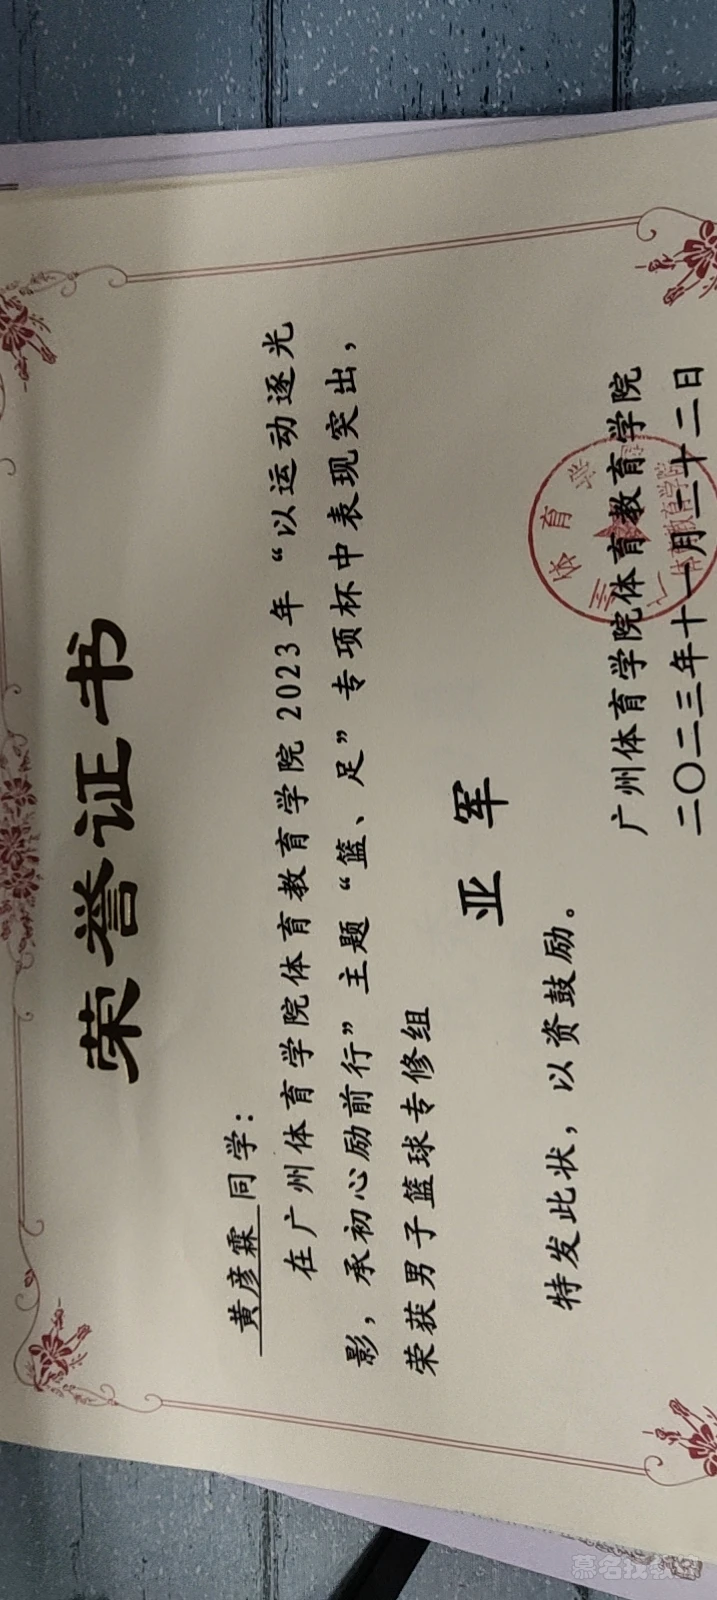 荣誉证书
黄彦霖同学：
在广州体育学院体育教育学院 2023 年“以运动逐光
影，承初心励前行”主题“篮、足”专项杯中表现突出，
荣获男子篮球专修组
亚军
特发此状，以资鼓励。
广州体育学院体育教育学院
二〇二三年十一月二十二日
体育教育学院